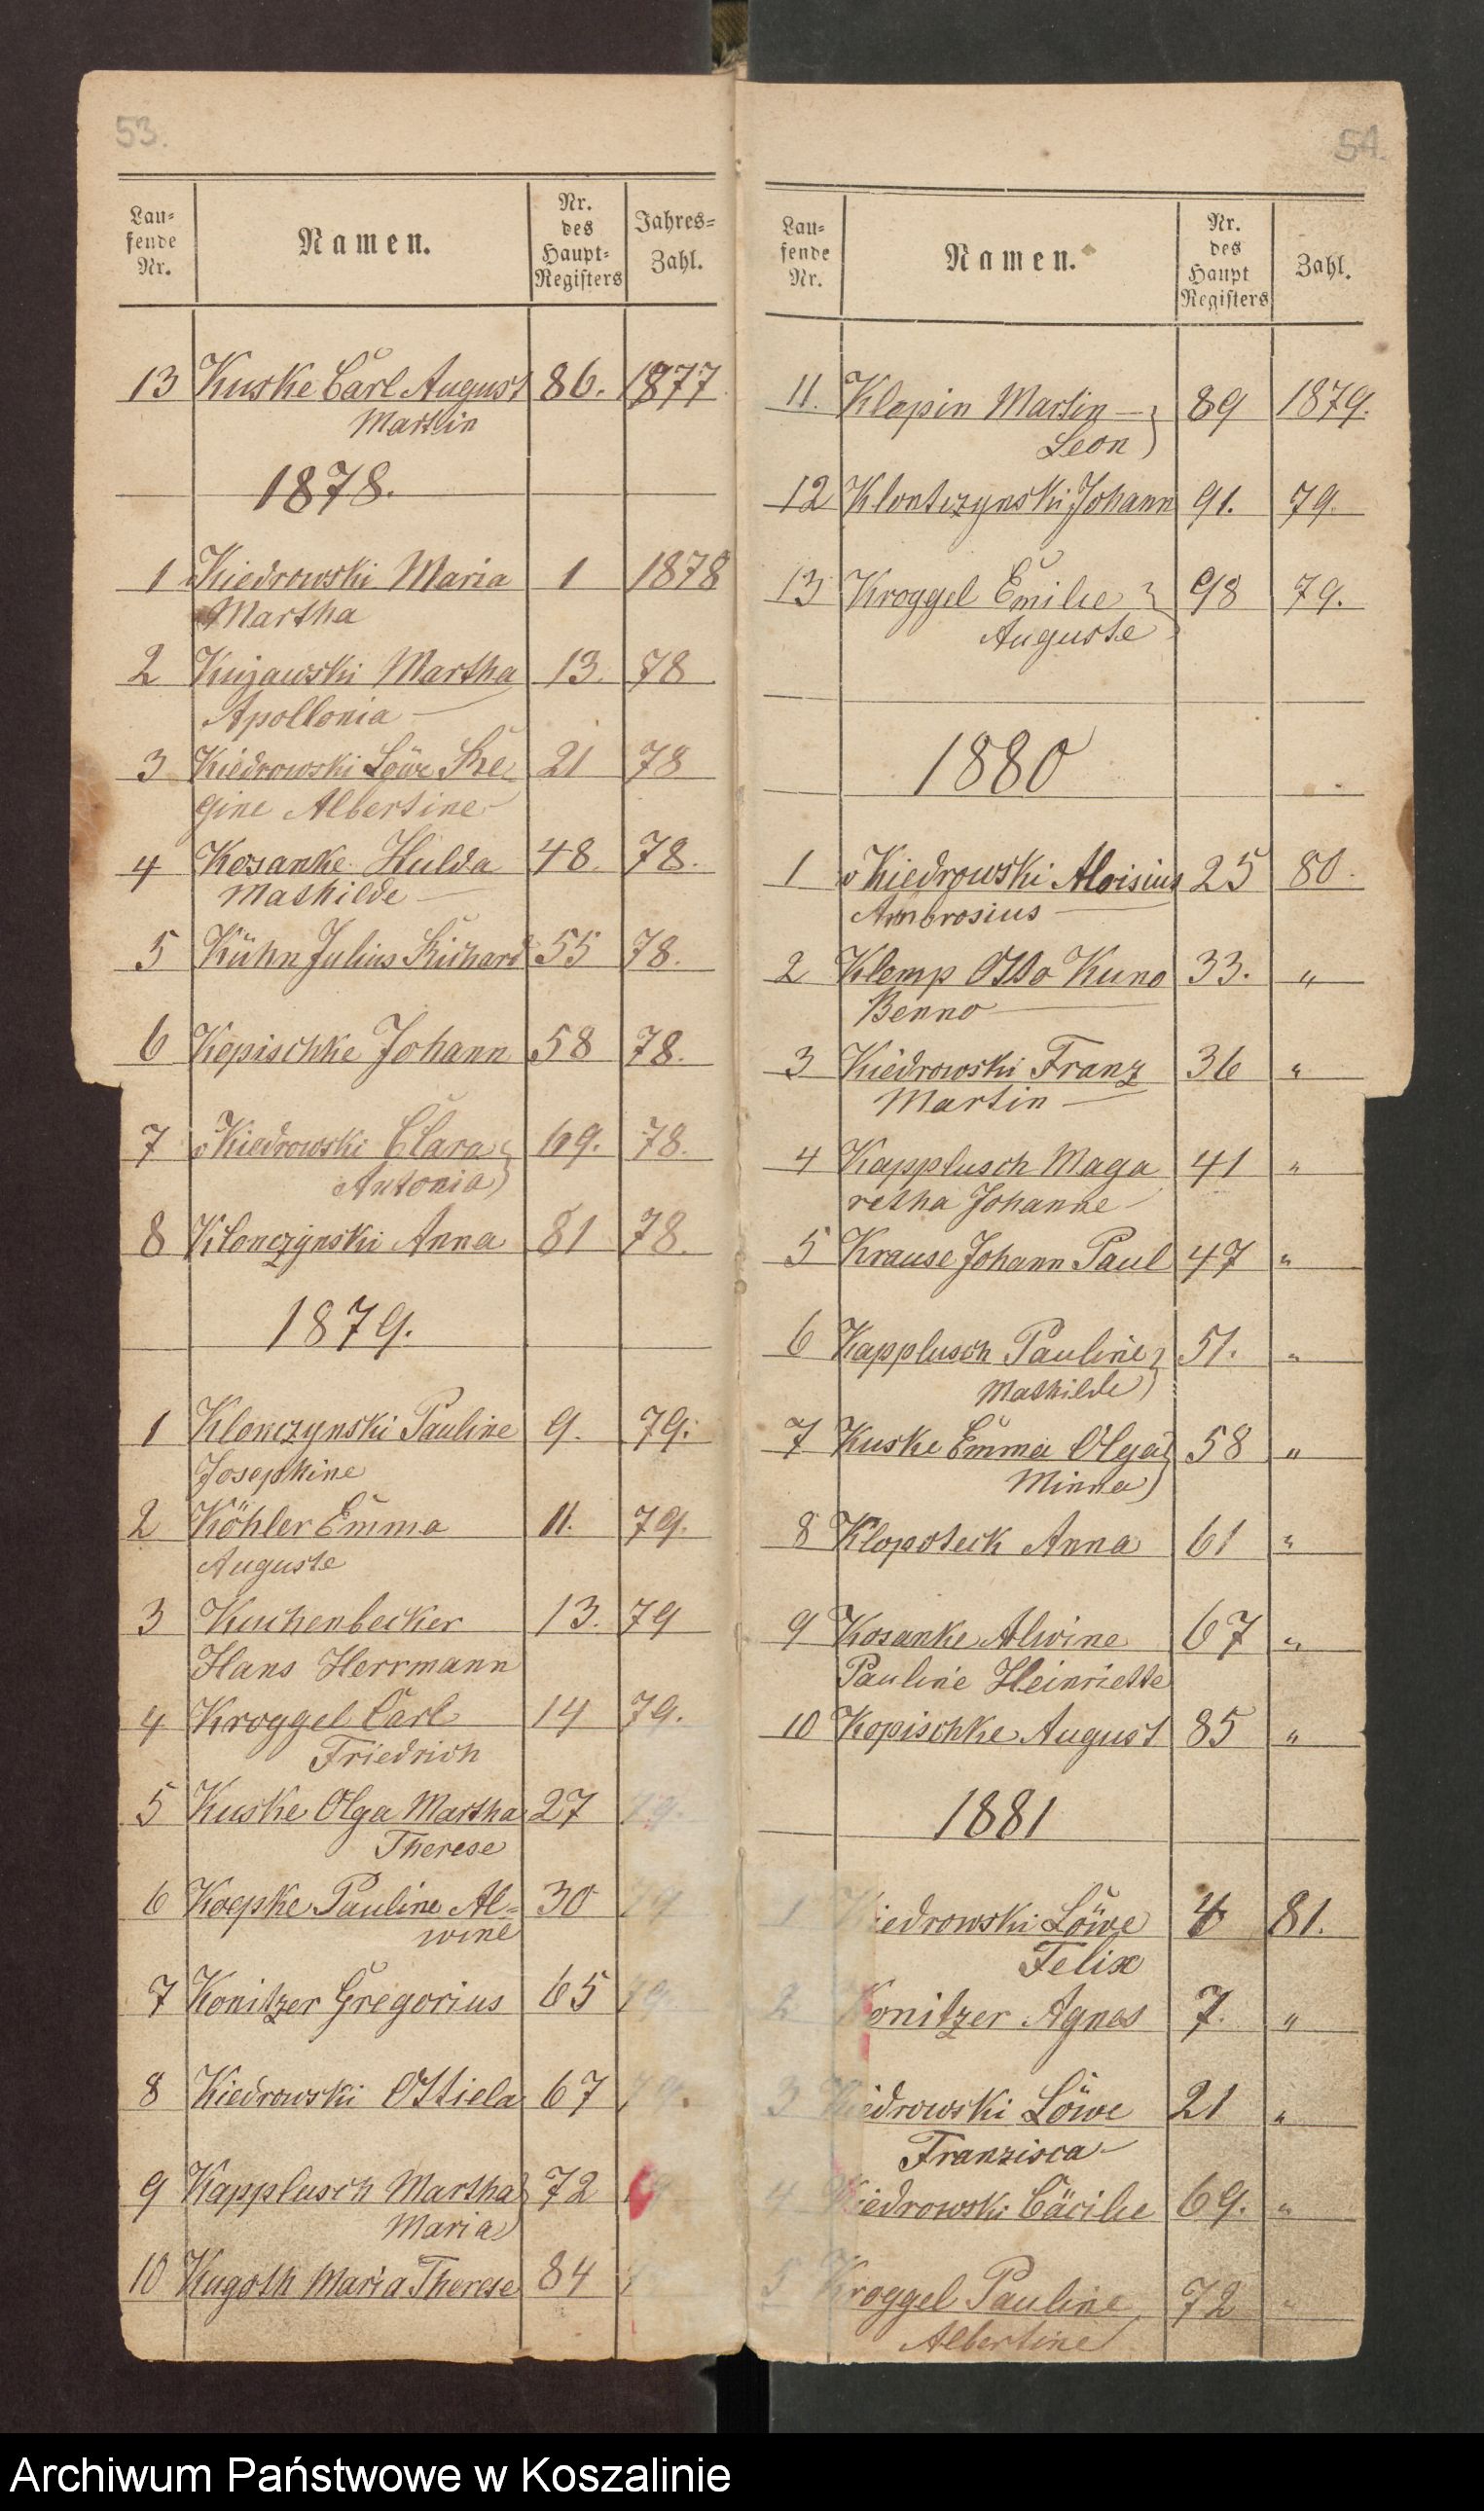 53.
Lau=
fende
Nr.
Namen.
Nr.
des
Haupt=
Registers
Jahres=
Zahl.
13 Kuske Carl August 86. 1877
Martin
1878.
1 v Kiedrowski Maria 1 1878
Martha
2 Kujawski Martha 13. 78.
Apollonia
3 Kiedrowski Löwe Re= 21 78
gine Albertine
4 Kosanke Hulda 48. 78.
Mathilde
5 Kühn Julius Richard 55 78.
6 Kopischke Johann 58 78.
7 v Kiedrowski Clara 69. 78.
Antonia
8 Klonczynski Anna 81 78.
1879.
1 Klonczynski Pauline 9. 79.
Josephine
2 Köhler Emma 11. 79.
Auguste
3 Kuchenbecker 13. 79
Hans Herrmann
4 Kroggel Carl 14 79.
Friedrich
5 Kuske Olga Martha 27 79.
Therese
6 Koepke Pauline Al= 30 79
wine
7 Konitzer Gregorius 65 79
8 Kiedrowski Ottiela 67 79.
9 Kapplusch Martha 72
Maria
10 Kugoth Maria Therese 84
54.
Lau=
fende
Nr.
Namen.
Nr.
des
Haupt
Registers
Zahl.
11. Klopin Martin 89 1879.
Leon
12 Klontczynski Johann 91. 79.
13 Kroggel Emilie 98 79.
Auguste
1880
1 v Kiedrowski Aloisius 25 80.
Ambrosius
2 Klemp Otto Kuno 33. "
Benno
3 Kiedrowski Franz 36 "
Martin
4 Kapplusch Maga 41 "
retha Johanne
5 Krause Johann Paul 47 "
6 Kapplusch Pauline 51. "
Mathilde
7 Kuske Emma Olga 58 "
Minna
8 Klopoteck Anna 61 "
9 Kosanke Alwine 67 "
Pauline Heinriette
10 Kopischke August 85 "
1881
1 Kiedrowski Löwe 4 81.
Felix
2 Konitzer Agnes 7. "
3 Kiedrowski Löwe 21 "
Franzisca
4 Kiedrowski Cäcilie 69. "
5 Kroggel Pauline 72 "
Albertine
Archiwum Państwowe w Koszalinie